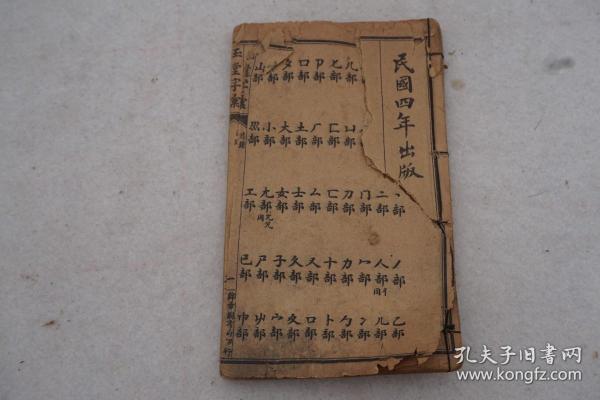 民國四年出版
丶部 丿部 乙部
二部 人部 儿部
冂部 冖部 冫部
几部 凵部 刀部 力部 勹部
匕部 匚部 匸部 十部 卜部
卩部 厂部 厶部 又部 口部
口部 土部 士部 夂部 夊部
夕部 大部 女部 子部 宀部
小部 尢部 尸部 屮部
山部 巛部 工部 巳部 巾部
玉堂字彙
一
孔夫子旧书网
www.kongfz.com